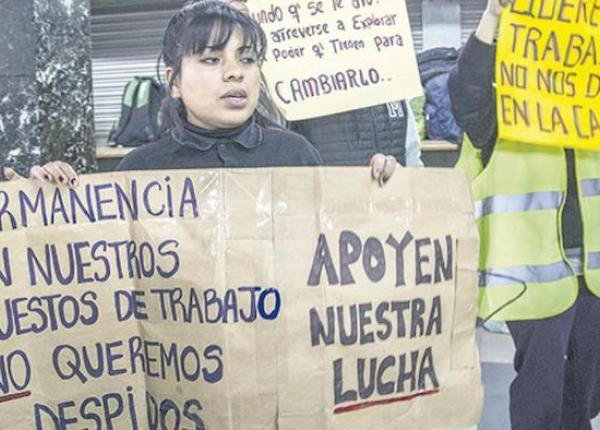 undo q' se le dio.
atreverse a Explorar
Poder q' Tienen para
CAMBIARLO..
TRABA
NO NOS D
EN LA CA
RMANENCIA
N NUESTROS
UESTOS DE TRABAJO
NO QUEREMOS
DESPIDOS
APOYEN
NUESTRA
LUCHA